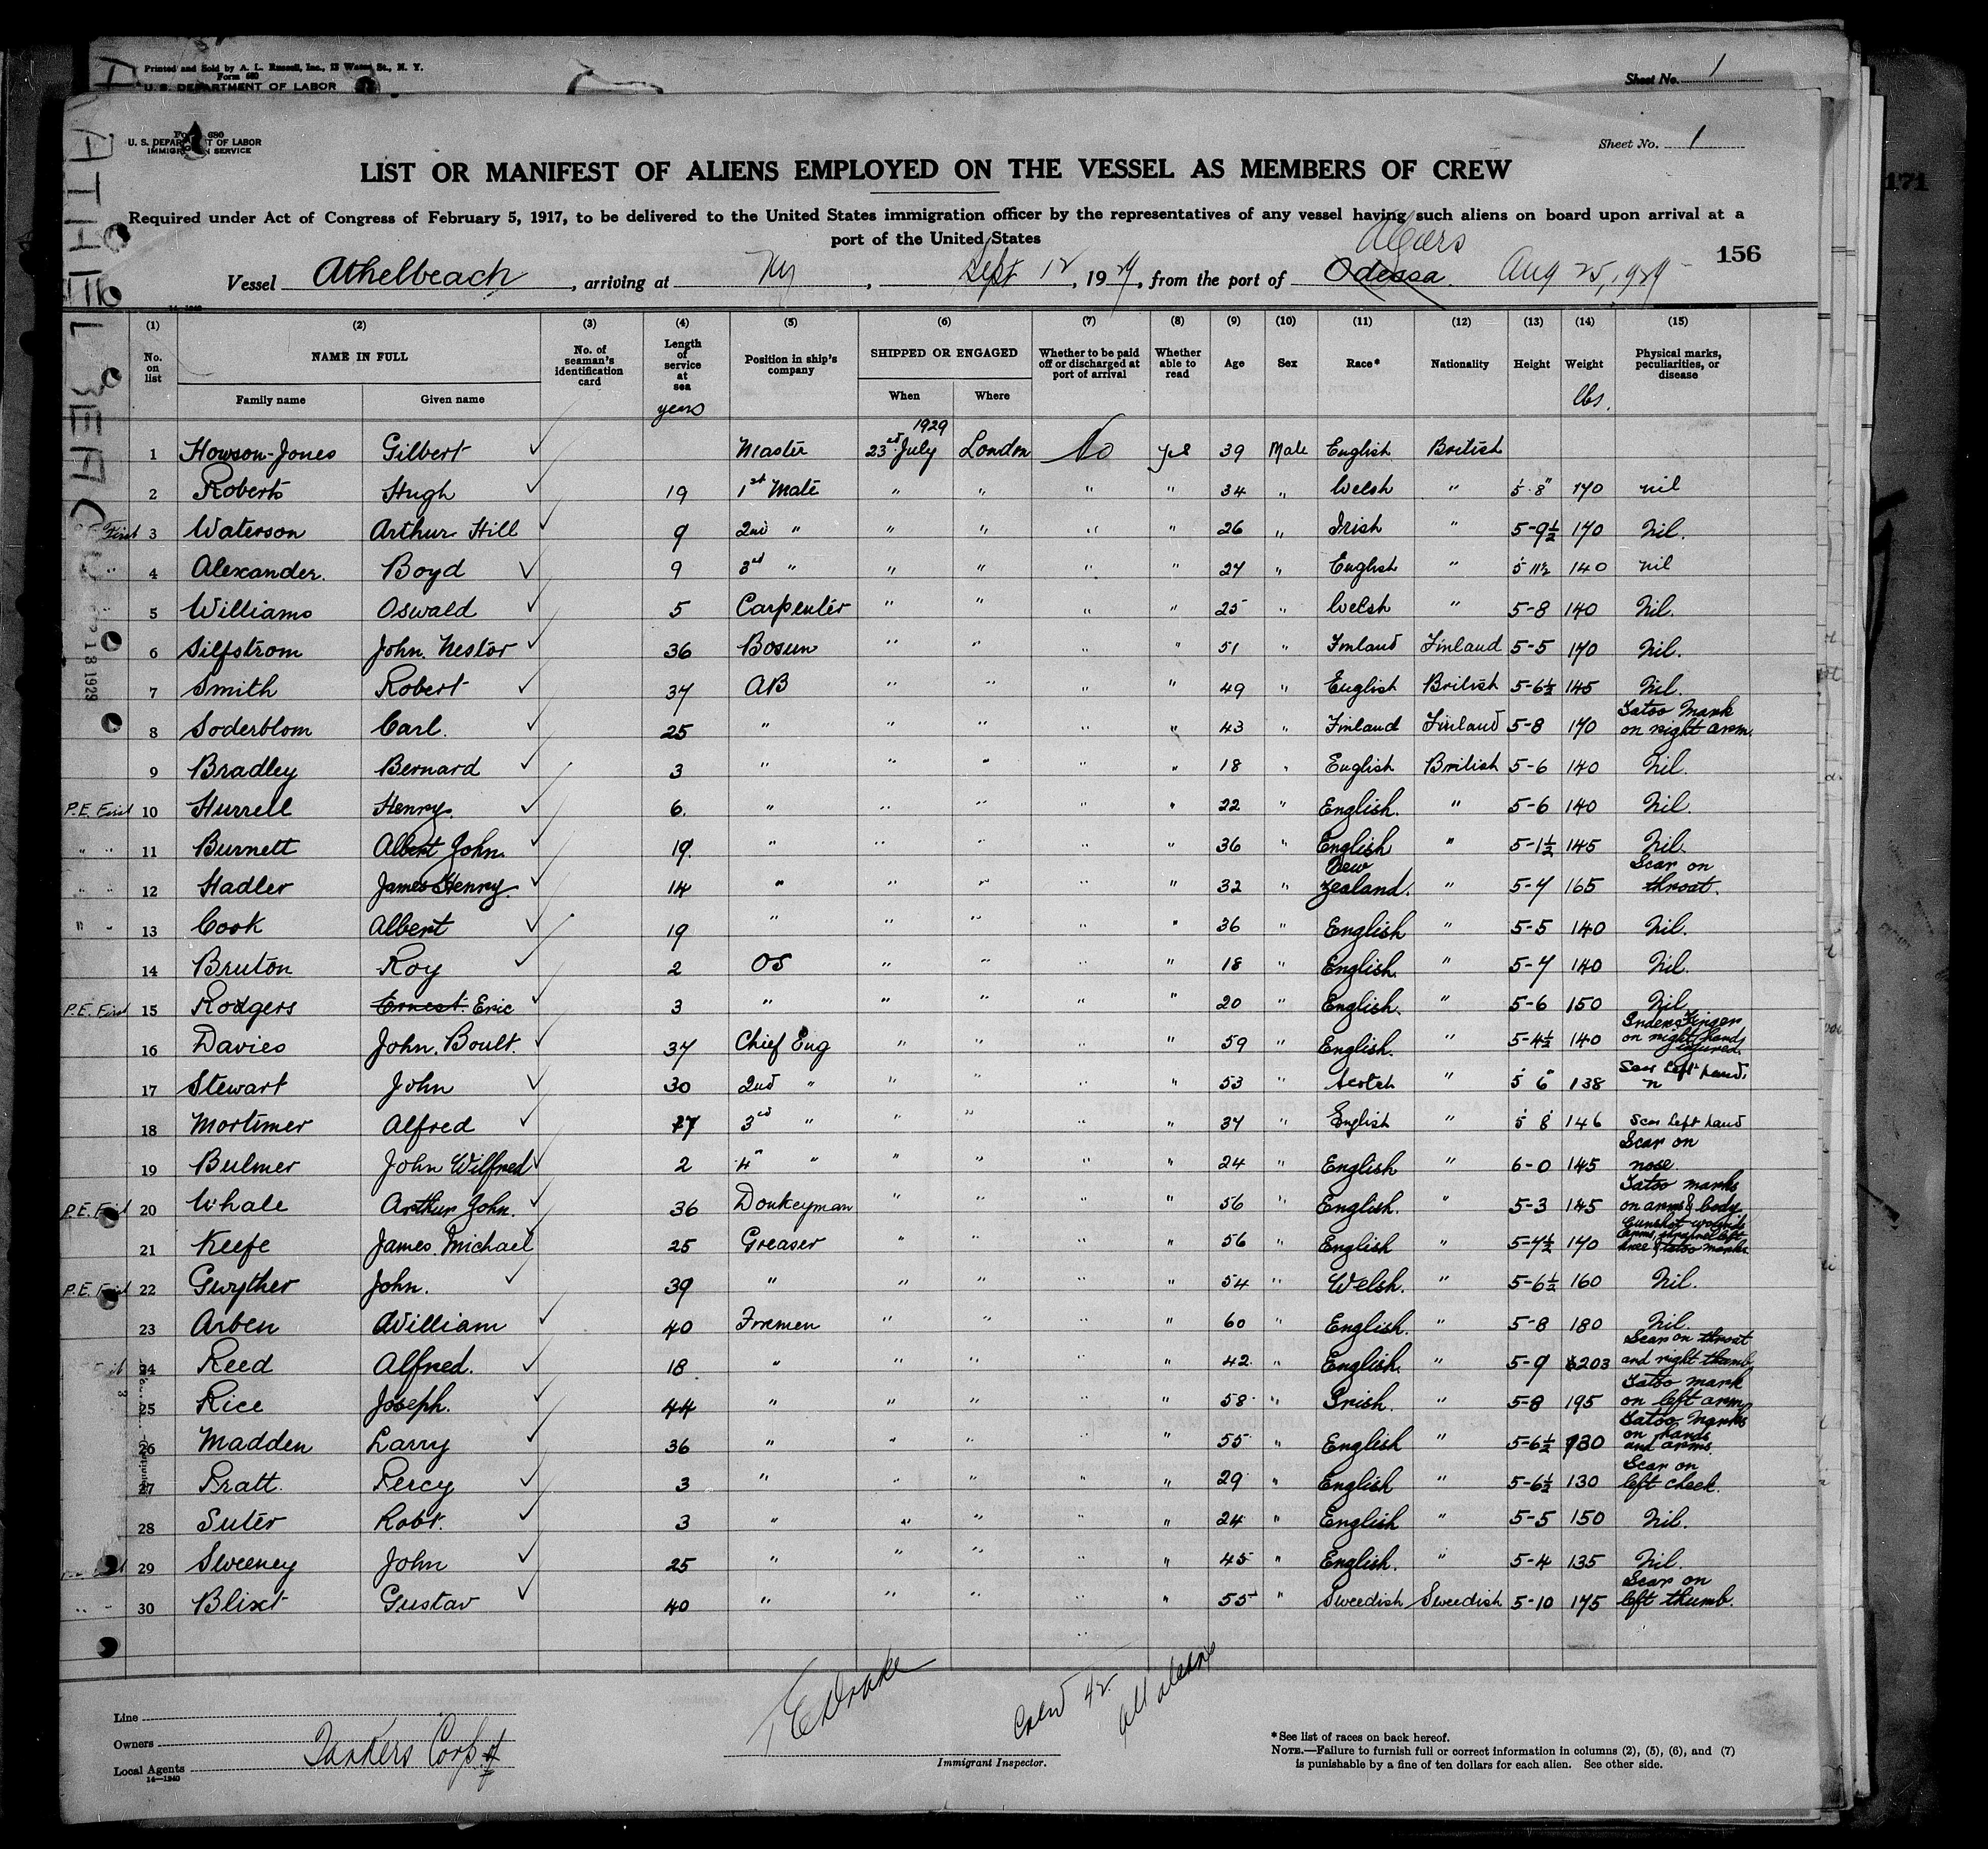 Printed and Sold by A. L. Russell, Inc., 13 Water St., N. Y.
Form 680
U. S. DEPARTMENT OF LABOR
Sheet No. 1
Form 680
U. S. DEPARTMENT OF LABOR
IMMIGRATION SERVICE
Sheet No. 1
LIST OR MANIFEST OF ALIENS EMPLOYED ON THE VESSEL AS MEMBERS OF CREW
171
Required under Act of Congress of February 5, 1917, to be delivered to the United States immigration officer by the representatives of any vessel having such aliens on board upon arrival at a
port of the United States
Algiers
156
Vessel Athelbeach, arriving at NY, Sept 12, 1929, from the port of Odessa. Aug 25, 1929
ATHELBEACH
14-1240
(1) (2) (3) (4) (5) (6) (7) (8) (9) (10) (11) (12) (13) (14) (15)
No. on list NAME IN FULL No. of seaman's identification card Length of service at sea Position in ship's company SHIPPED OR ENGAGED Whether to be paid off or discharged at port of arrival Whether able to read Age Sex Race* Nationality Height Weight Physical marks, peculiarities, or disease
Family name Given name years When Where lbs.
1929
1 Howson-Jones Gilbert ✓ Master 23rd July London No yes 39 Male English British
2 Roberts Hugh ✓ 19 1st Mate " " " " 34 " Welsh " 5' 8" 170 nil
First 3 Waterson Arthur Hill ✓ 9 2nd " " " " " 26 " Irish " 5-9½ 170 Nil.
" 4 Alexander. Boyd ✓ 9 3rd " " " " " 27 " English " 5 11½ 140 nil
5 Williams Oswald ✓ 5 Carpenter " " " " 25 " Welsh " 5-8 140 Nil.
6 Silfstrom John. Nestor ✓ 36 Bosun " " " " 51 " Finland Finland 5-5 170 Nil.
7 Smith Robert ✓ 37 AB " " " " 49 " English British 5-6½ 145 Nil.
8 Soderblom Carl. ✓ 25 " " " " " 43 " Finland Finland 5-8 170 Tatoo Mark on right arm.
9 Bradley Bernard ✓ 3 " " " " " 18 " English British 5-6 140 Nil.
P.E. First 10 Hurrell Henry. ✓ 6. " " " " " 22 " English. " 5-6 140 Nil.
" " 11 Burnett Albert John. ✓ 19. " " " " " 36 " English " 5-1½ 145 Nil.
" " 12 Hadler James Henry. ✓ 14 " " " " " 32 " New Zealand. " 5-7 165 Scar on throat.
" " 13 Cook Albert ✓ 19 " " " " " 36 " English " 5-5 140 Nil.
14 Bruton Roy ✓ 2 OS " " " " 18 " English. " 5-7 140 Nil.
P.E. First 15 Rodgers Ernest. Eric ✓ 3 " " " " " 20 " English. " 5-6 150 Nil.
16 Davies John. Boult. ✓ 37 Chief Eng " " " " 59 " English. " 5-4½ 140 Index Finger on right hand injured.
17 Stewart John ✓ 30 2nd " " " " " 53 " Scotch " 5' 6" 138 Scar left hand.
18 Mortimer Alfred ✓ 17 3rd " " " " " 37 " English " 5' 8" 146 Scar left hand
19 Bulmer John Wilfred ✓ 2 4" " " " " " 24 " English " 6-0 145 Scar on nose.
P.E. First 20 Whale Arthur John. ✓ 36 Donkeyman " " " " 56 " English. " 5-3 145 Tatoo marks on arms & body
21 Keefe James. Michael ✓ 25 Greaser " " " " 56 " English " 5-7½ 170 Gunshot wounds left knee & tatoo marks
P.E. First 22 Gwyther John. ✓ 39 " " " " " 54 " Welsh. " 5-6½ 160 Nil.
23 Arben William ✓ 40 Firemen " " " " 60 " English. " 5-8 180 Nil.
24 Reed Alfred. ✓ 18 " " " " " 42 " English. " 5-9 203 Scar on throat and right thumb
25 Rice Joseph. ✓ 44 " " " " " 58 " Irish. " 5-8 195 Tatoo mark on left arm
26 Madden Larry ✓ 36 " " " " " 55 " English " 5-6½ 130 Tatoo Marks on hands and arms.
27 Pratt. Percy ✓ 3 " " " " " 29 " English " 5-6½ 130 Scar on left cheek.
28 Suter Robt. ✓ 3 " " " " " 24 " English " 5-5 150 Nil.
29 Sweeney John ✓ 25 " " " " " 45 " English. " 5-4 135 Nil.
" " 30 Blixt Gustav ✓ 40 " " " " " 55 " Sweedish Sweedish 5-10 175 Scar on left thumb.
18 1929
Line
Owners
Local Agents Tankers Corp. of
14-1240
T E Drake
Immigrant Inspector.
Crew 42
all aliens
* See list of races on back hereof.
NOTE.—Failure to furnish full or correct information in columns (2), (5), (6), and (7)
is punishable by a fine of ten dollars for each alien. See other side.